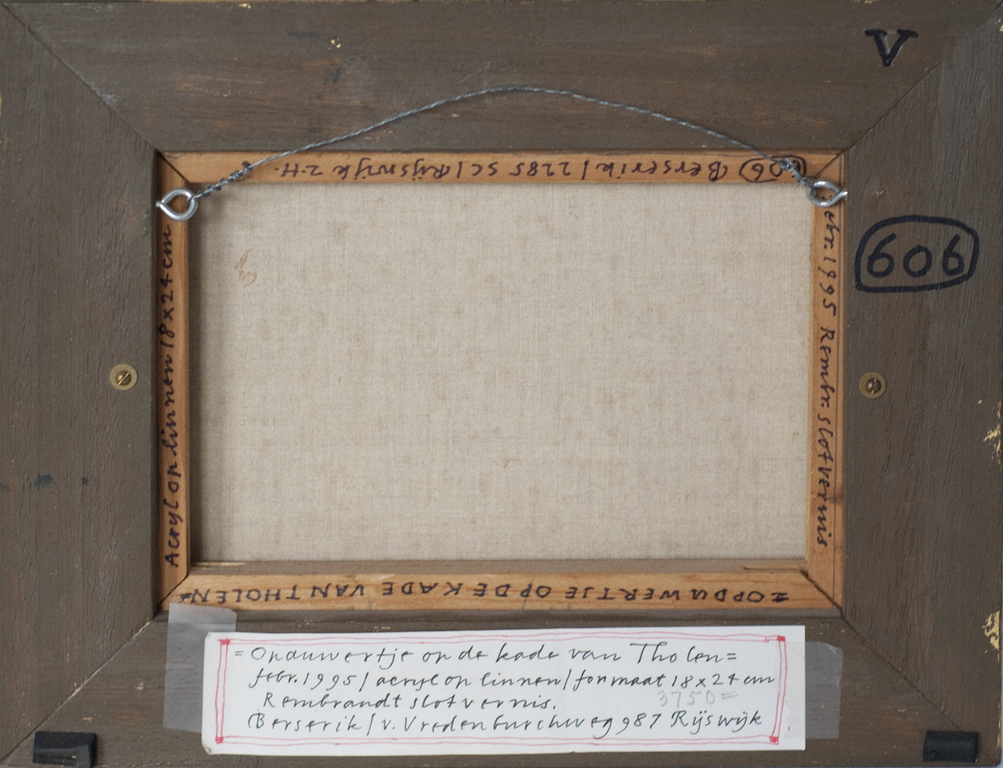 V
606 Berserik / 2285 SC / Rijswijk Z.H.
606
Acryl op linnen 18 x 24 cm
febr. 1995 Rembr. slotvernis
= OPDUWERTJE OP DE KADE VAN THOLEN =
= Opduwertje op de kade van Tholen =
febr. 1995 / acryl op linnen / formaat 18 x 24 cm
Rembrandt slotvernis.
3750 =
Berserik / v. Vredenburchweg 987 Rijswijk